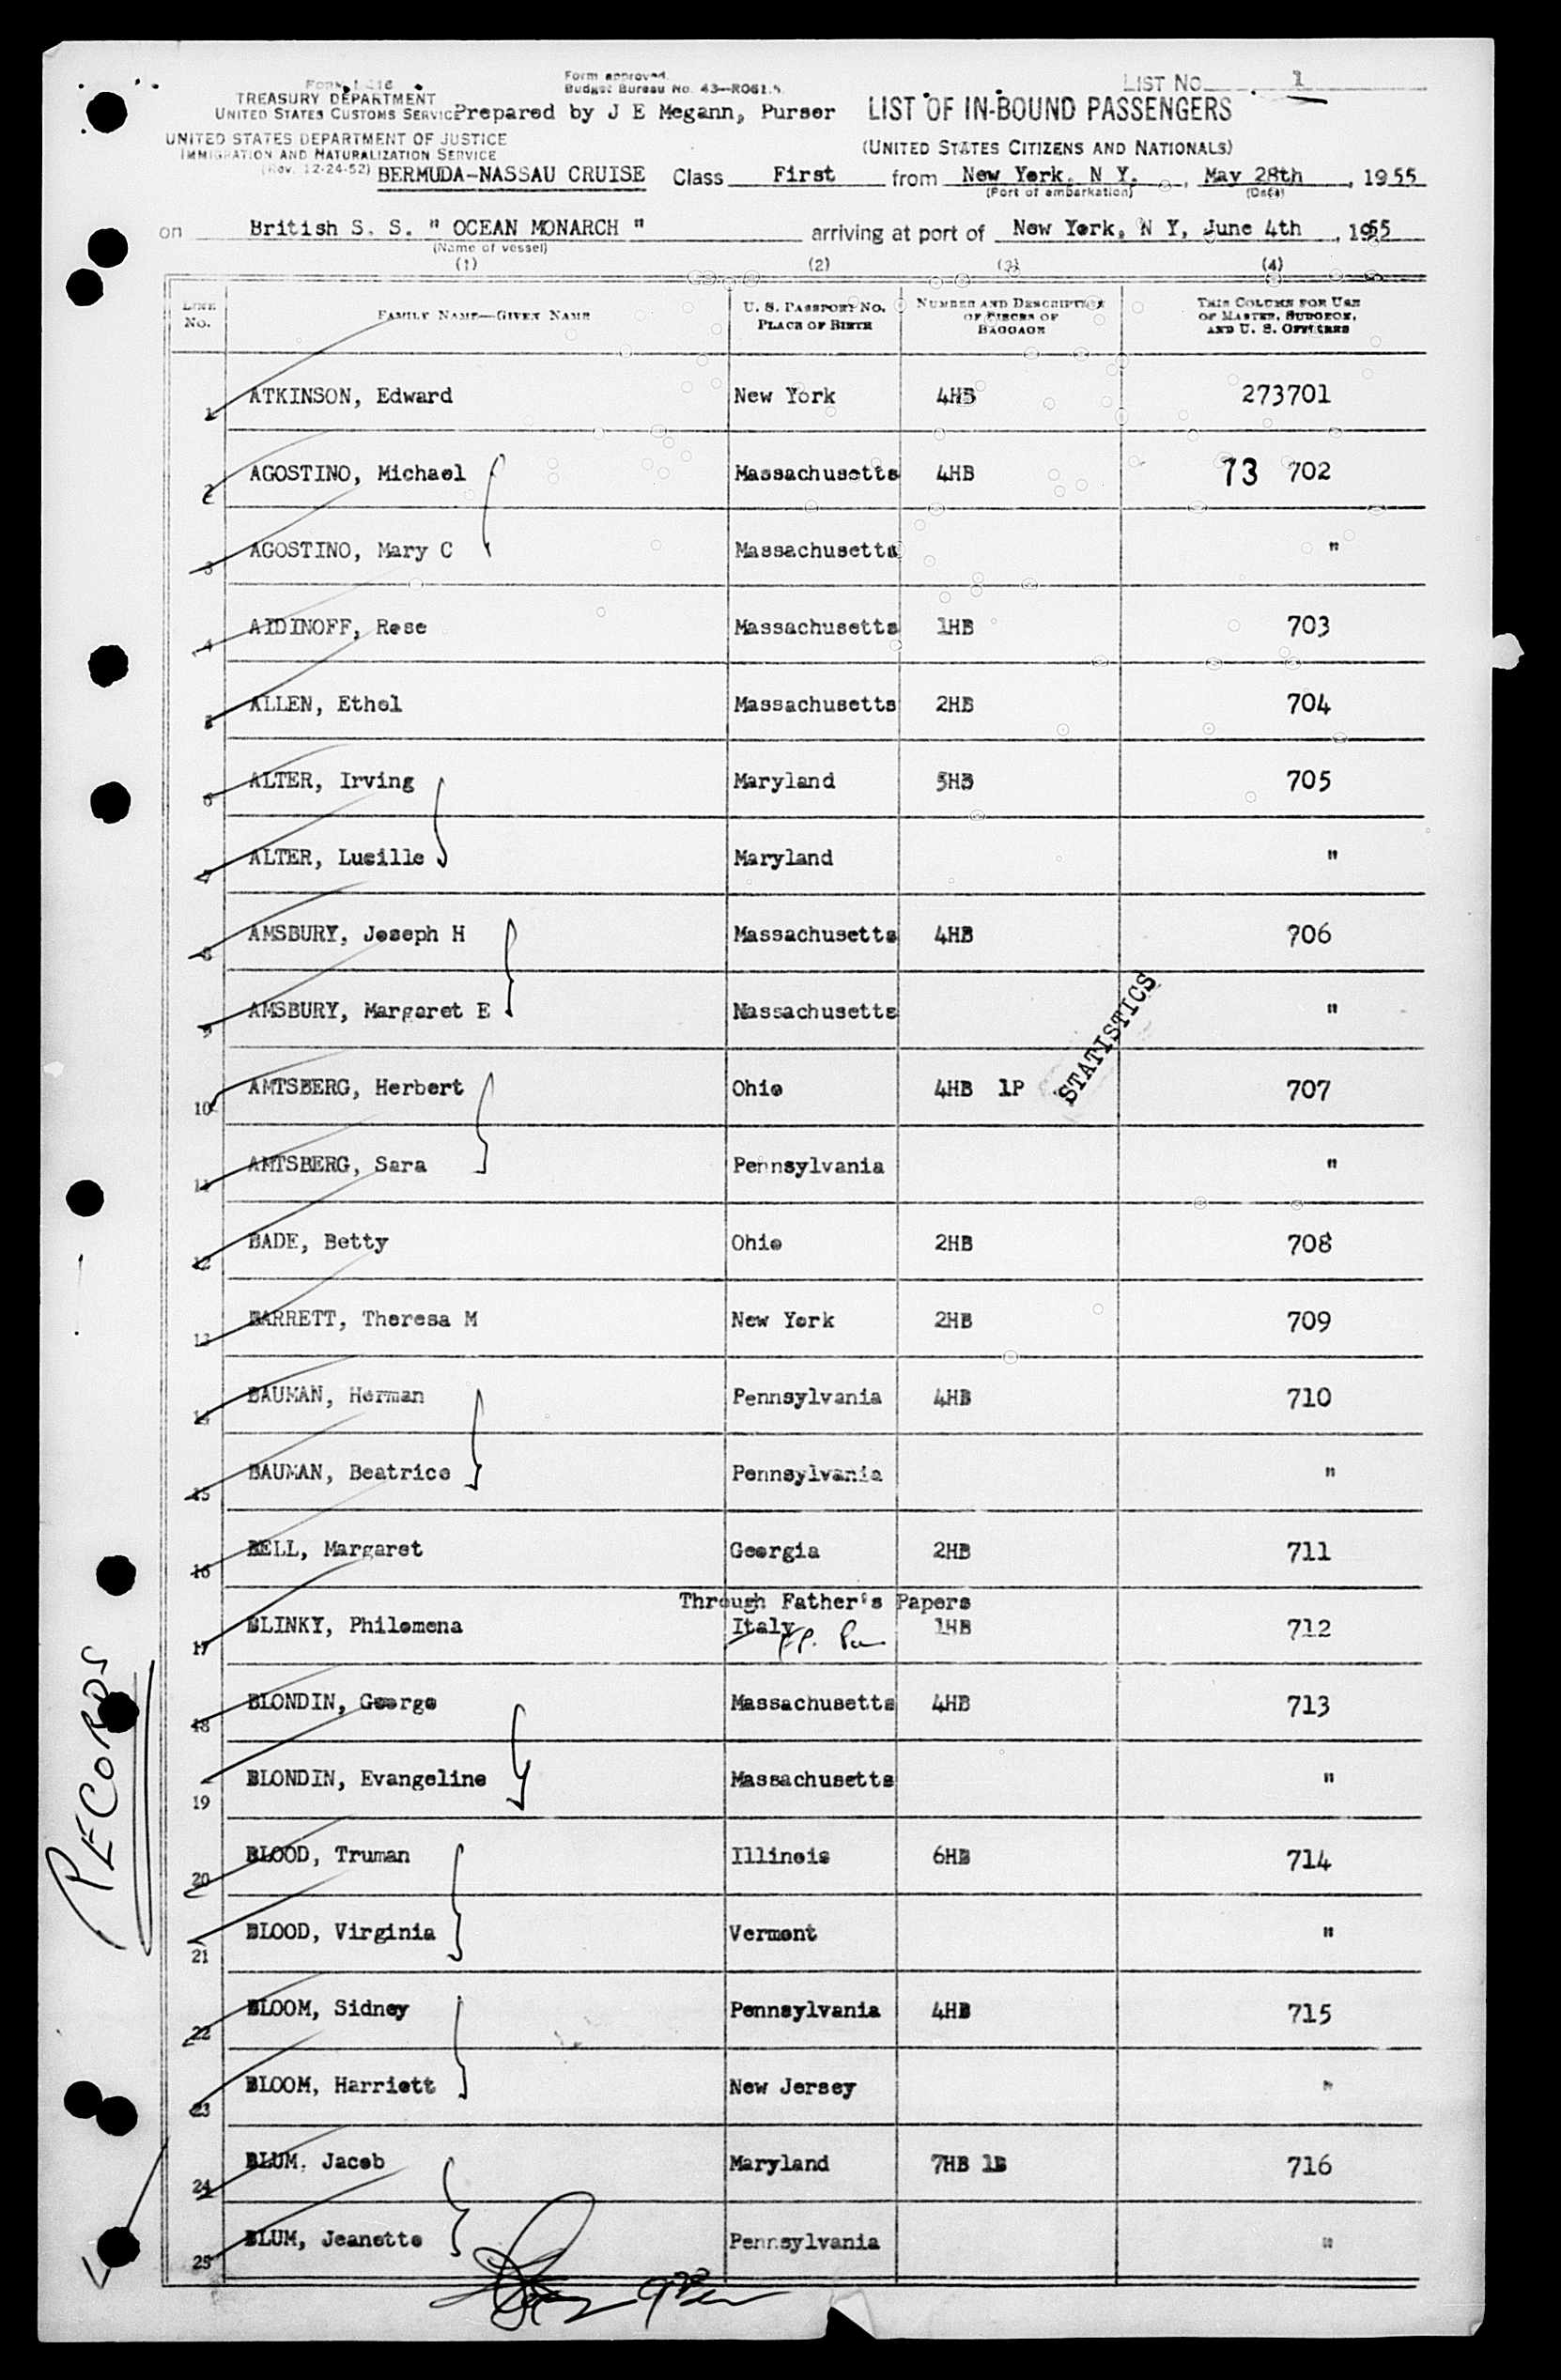 LIST No. 1
Form approved.
Budget Bureau No. 43—R061.5.
TREASURY DEPARTMENT
UNITED STATES CUSTOMS SERVICE Prepared by J E Megann, Purser LIST OF IN-BOUND PASSENGERS
UNITED STATES DEPARTMENT OF JUSTICE
IMMIGRATION AND NATURALIZATION SERVICE
(UNITED STATES CITIZENS AND NATIONALS)
(Rev. 12-24-52) BERMUDA-NASSAU CRUISE Class First from New York. N Y., May 28th, 1955
(Port of embarkation) (Date)
on British S. S. " OCEAN MONARCH " arriving at port of New York, N Y, June 4th, 1955
(Name of vessel)
(1) (2) (3) (4)
LINE No. FAMILY NAME—GIVEN NAME U. S. PASSPORT NO. PLACE OF BIRTH NUMBER AND DESCRIPTION OF PIECES OF BAGGAGE THIS COLUMN FOR USE OF MASTER, SURGEON, AND U. S. OFFICERS
1 ATKINSON, Edward New York 4HB 273701
2 AGOSTINO, Michael Massachusetts 4HB 73 702
3 AGOSTINO, Mary C Massachusetts "
4 AIDINOFF, Rose Massachusetts 1HB 703
5 ALLEN, Ethel Massachusetts 2HB 704
6 ALTER, Irving Maryland 5HB 705
7 ALTER, Lucille Maryland "
8 AMSBURY, Joseph H Massachusetts 4HB 706
9 AMSBURY, Margaret E Massachusetts "
STATISTICS
10 AMTSBERG, Herbert Ohio 4HB 1P 707
11 AMTSBERG, Sara Pennsylvania "
12 BADE, Betty Ohio 2HB 708
13 BARRETT, Theresa M New York 2HB 709
14 BAUMAN, Herman Pennsylvania 4HB 710
15 BAUMAN, Beatrice Pennsylvania "
16 BELL, Margaret Georgia 2HB 711
Through Father's Papers
17 BLINKY, Philomena Italy 1HB 712
18 BLONDIN, George Massachusetts 4HB 713
19 BLONDIN, Evangeline Massachusetts "
20 BLOOD, Truman Illinois 6HB 714
21 BLOOD, Virginia Vermont "
22 BLOOM, Sidney Pennsylvania 4HB 715
23 BLOOM, Harriett New Jersey "
24 BLUM, Jacob Maryland 7HB 1B 716
25 BLUM, Jeanette Pennsylvania "
RECORDS